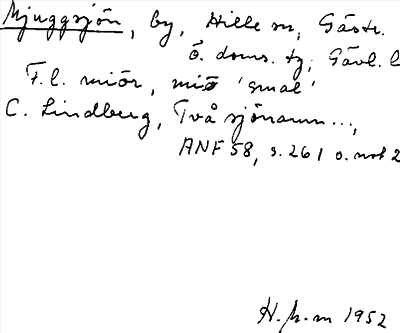 Mjuggsjön, by, Hille sn, Gästr.
Ö. doms. tg, Gävl. l
F.l. miör, miö 'smal'
C. Lindberg, Två sjönamn...,
ANF 58, s. 261 o. not 2
H. h-m 1952